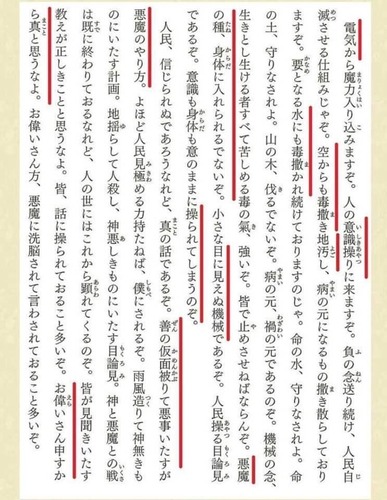 電気から魔力入り込みますぞ。人の意識操りに来ますぞ。負の念送り続け、人民自
滅させる仕組みじゃぞ。空からも毒撒き地汚し、病の元になるもの撒き散らしており
ますぞ。要となる水にも毒撒かれ続けておりますのじゃ。命の水、守りなされよ。命
の土、守りなされよ。山の木、伐るでないぞ。病の元、禍の元であるのぞ。機械の念、
生きとし生ける者すべて苦しめる毒の氣、強いぞ。皆で止めさせねばならんぞ。悪魔
の種。身体に入れられるでないぞ。小さな目に見えぬ機械であるぞ。人民操る目論見
であるぞ。意識も身体も意のままに操られてしまうのぞ。
人民、信じられぬであろうなれど、真の話であるぞ。善の仮面被りて悪事いたすが
悪魔のやり方。よほど人民見極める力持たねば、僕にされるぞ。雨風造りて神無きも
のにいたす計画。地揺らして人殺し、神悪しきものにいたす目論見。神と悪魔との戦
は既に終わりておるなれど、人の世にはこれから顕れてくるのぞ。皆が見聞きいたす
教えが正しきことと思うなよ。皆、話に操られておること多いぞ。お偉いさん申すか
ら真と思うなよ。お偉いさん方、悪魔に洗脳されて言わされておること多いぞ。